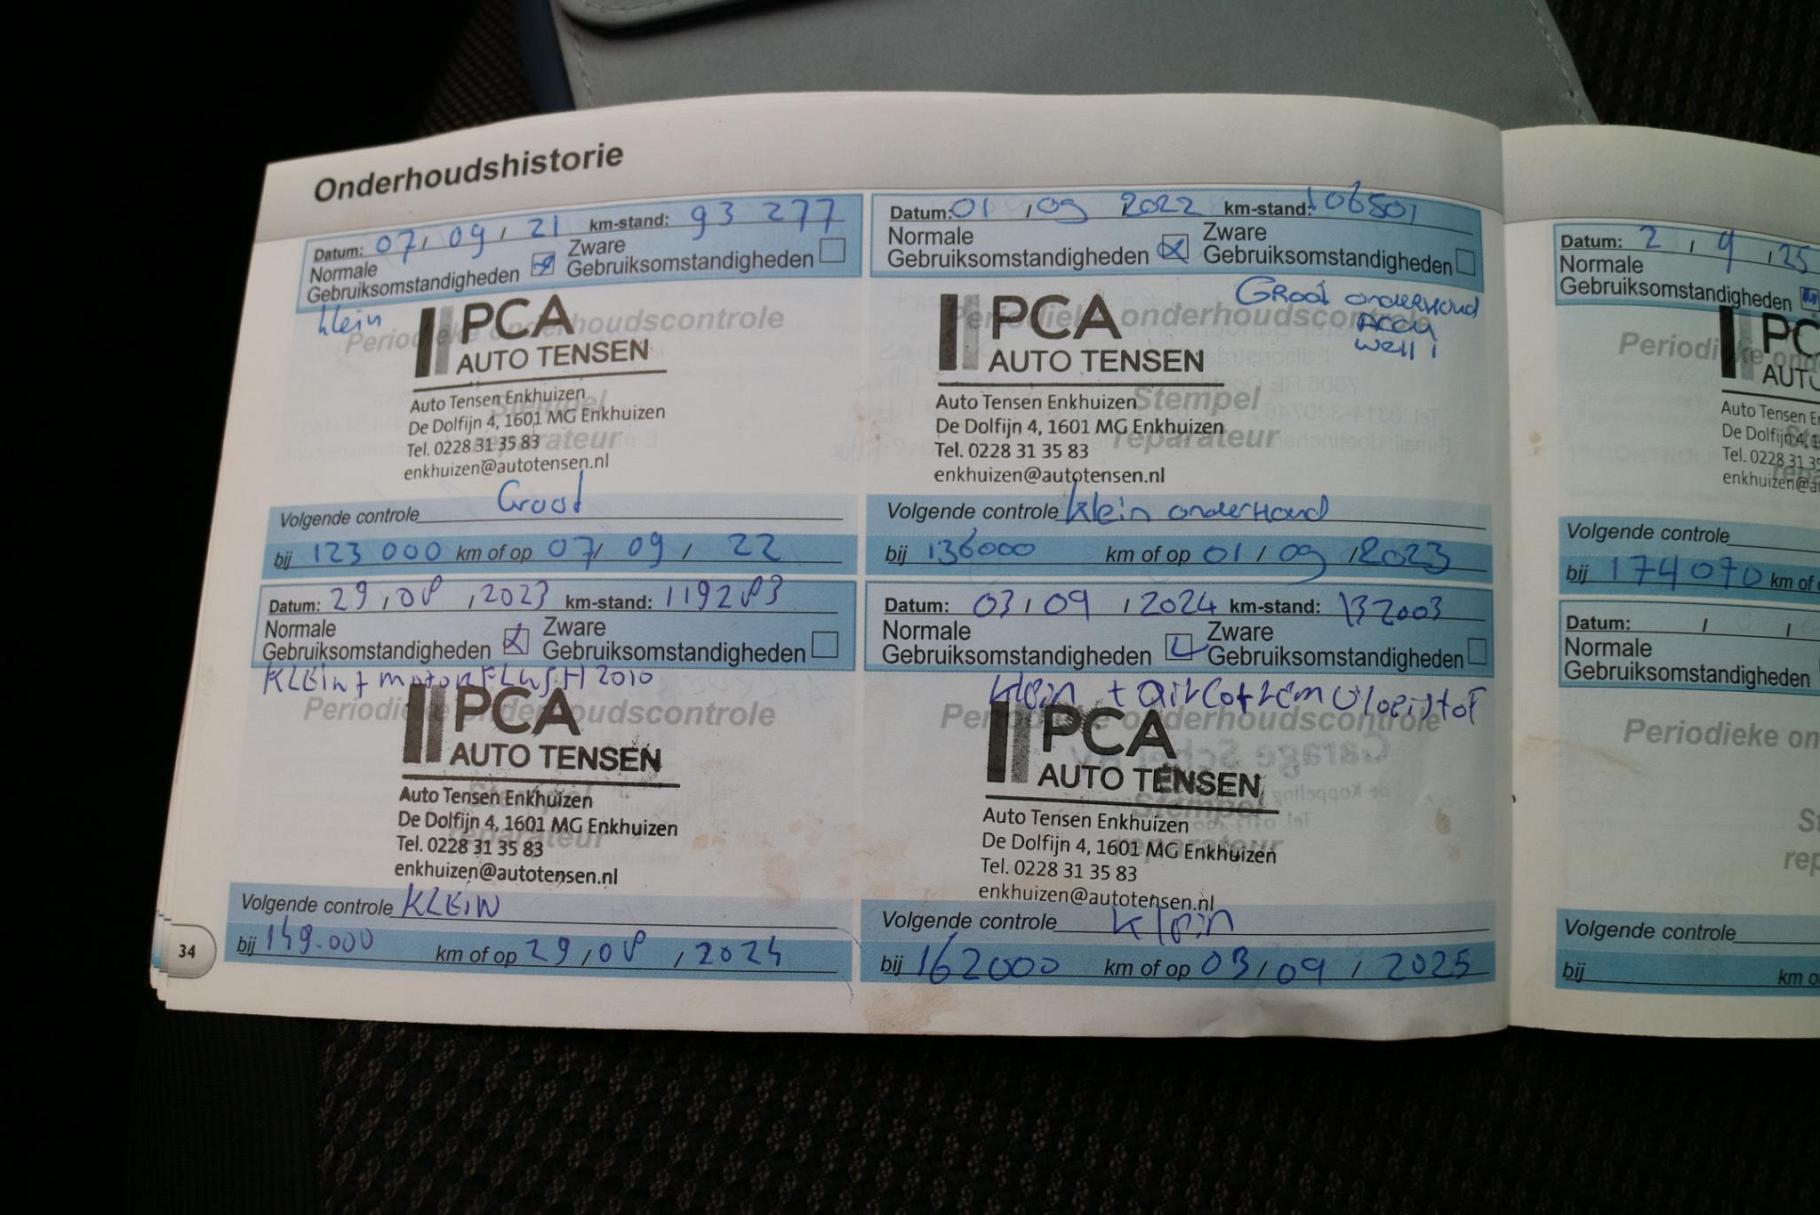 Onderhoudshistorie
Datum: 07, 09, 21 km-stand: 93 277
Normale
Gebruiksomstandigheden
Zware
Gebruiksomstandigheden
klein
Periodieke onderhoudscontrole
PCA
AUTO TENSEN
Stempel
reparateur
Auto Tensen Enkhuizen
De Dolfijn 4, 1601 MG Enkhuizen
Tel. 0228 31 35 83
enkhuizen@autotensen.nl
Volgende controle Groot
bij 123 000 km of op 07/ 09, 22
Datum: 01, 09 2022 km-stand: 106501
Normale
Gebruiksomstandigheden
Zware
Gebruiksomstandigheden
Groot onderhoud
Accu
Periodieke onderhoudscontrole
PCA
AUTO TENSEN
Stempel
reparateur
Auto Tensen Enkhuizen
De Dolfijn 4, 1601 MG Enkhuizen
Tel. 0228 31 35 83
enkhuizen@autotensen.nl
Volgende controle klein onderhoud
bij 136000 km of op 01/ 09 ,2023
Datum: 29, 08 , 2023 km-stand: 119283
Normale
Gebruiksomstandigheden
Zware
Gebruiksomstandigheden
KLEIN + motorFLUSH 2010
Periodieke onderhoudscontrole
PCA
AUTO TENSEN
Stempel
reparateur
Auto Tensen Enkhuizen
De Dolfijn 4, 1601 MG Enkhuizen
Tel. 0228 31 35 83
enkhuizen@autotensen.nl
Volgende controle KLEIN
bij 149.000 km of op 29, 08 , 2024
Datum: 03, 09 , 2024 km-stand: 132003
Normale
Gebruiksomstandigheden
Zware
Gebruiksomstandigheden
klein + airco + remvloeistof
Periodieke onderhoudscontrole
PCA
AUTO TENSEN
Stempel
reparateur
Auto Tensen Enkhuizen
De Dolfijn 4, 1601 MG Enkhuizen
Tel. 0228 31 35 83
enkhuizen@autotensen.nl
Volgende controle klein
bij 162000 km of op 03, 09 , 2025
34
Datum: 2 , 9 , 25
Normale
Gebruiksomstandigheden
Periodieke on
PC
AUTO
Auto Tensen E
De Dolfijn 4, 1
Tel. 0228 31 35
enkhuizen@a
Volgende controle
bij 174070 km of
Datum: , ,
Normale
Gebruiksomstandigheden
Periodieke on
St
rep
Volgende controle
bij km o